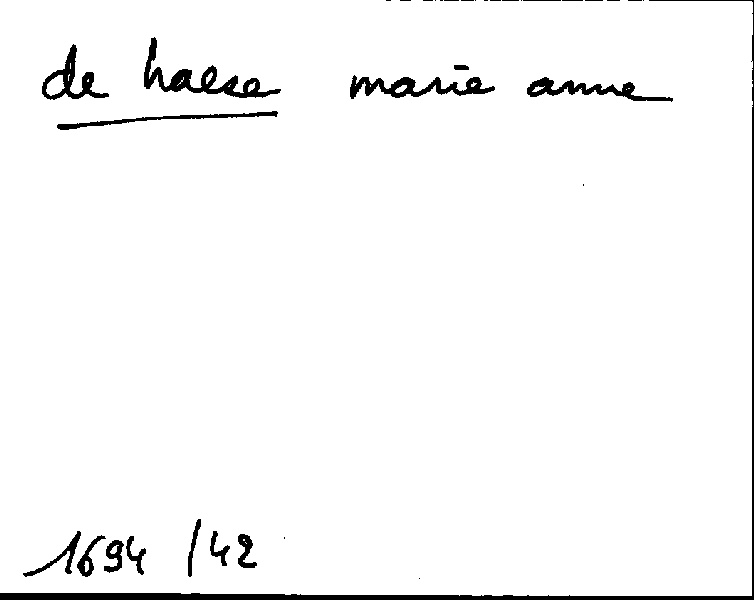 de haese marie anne
1694 / 42